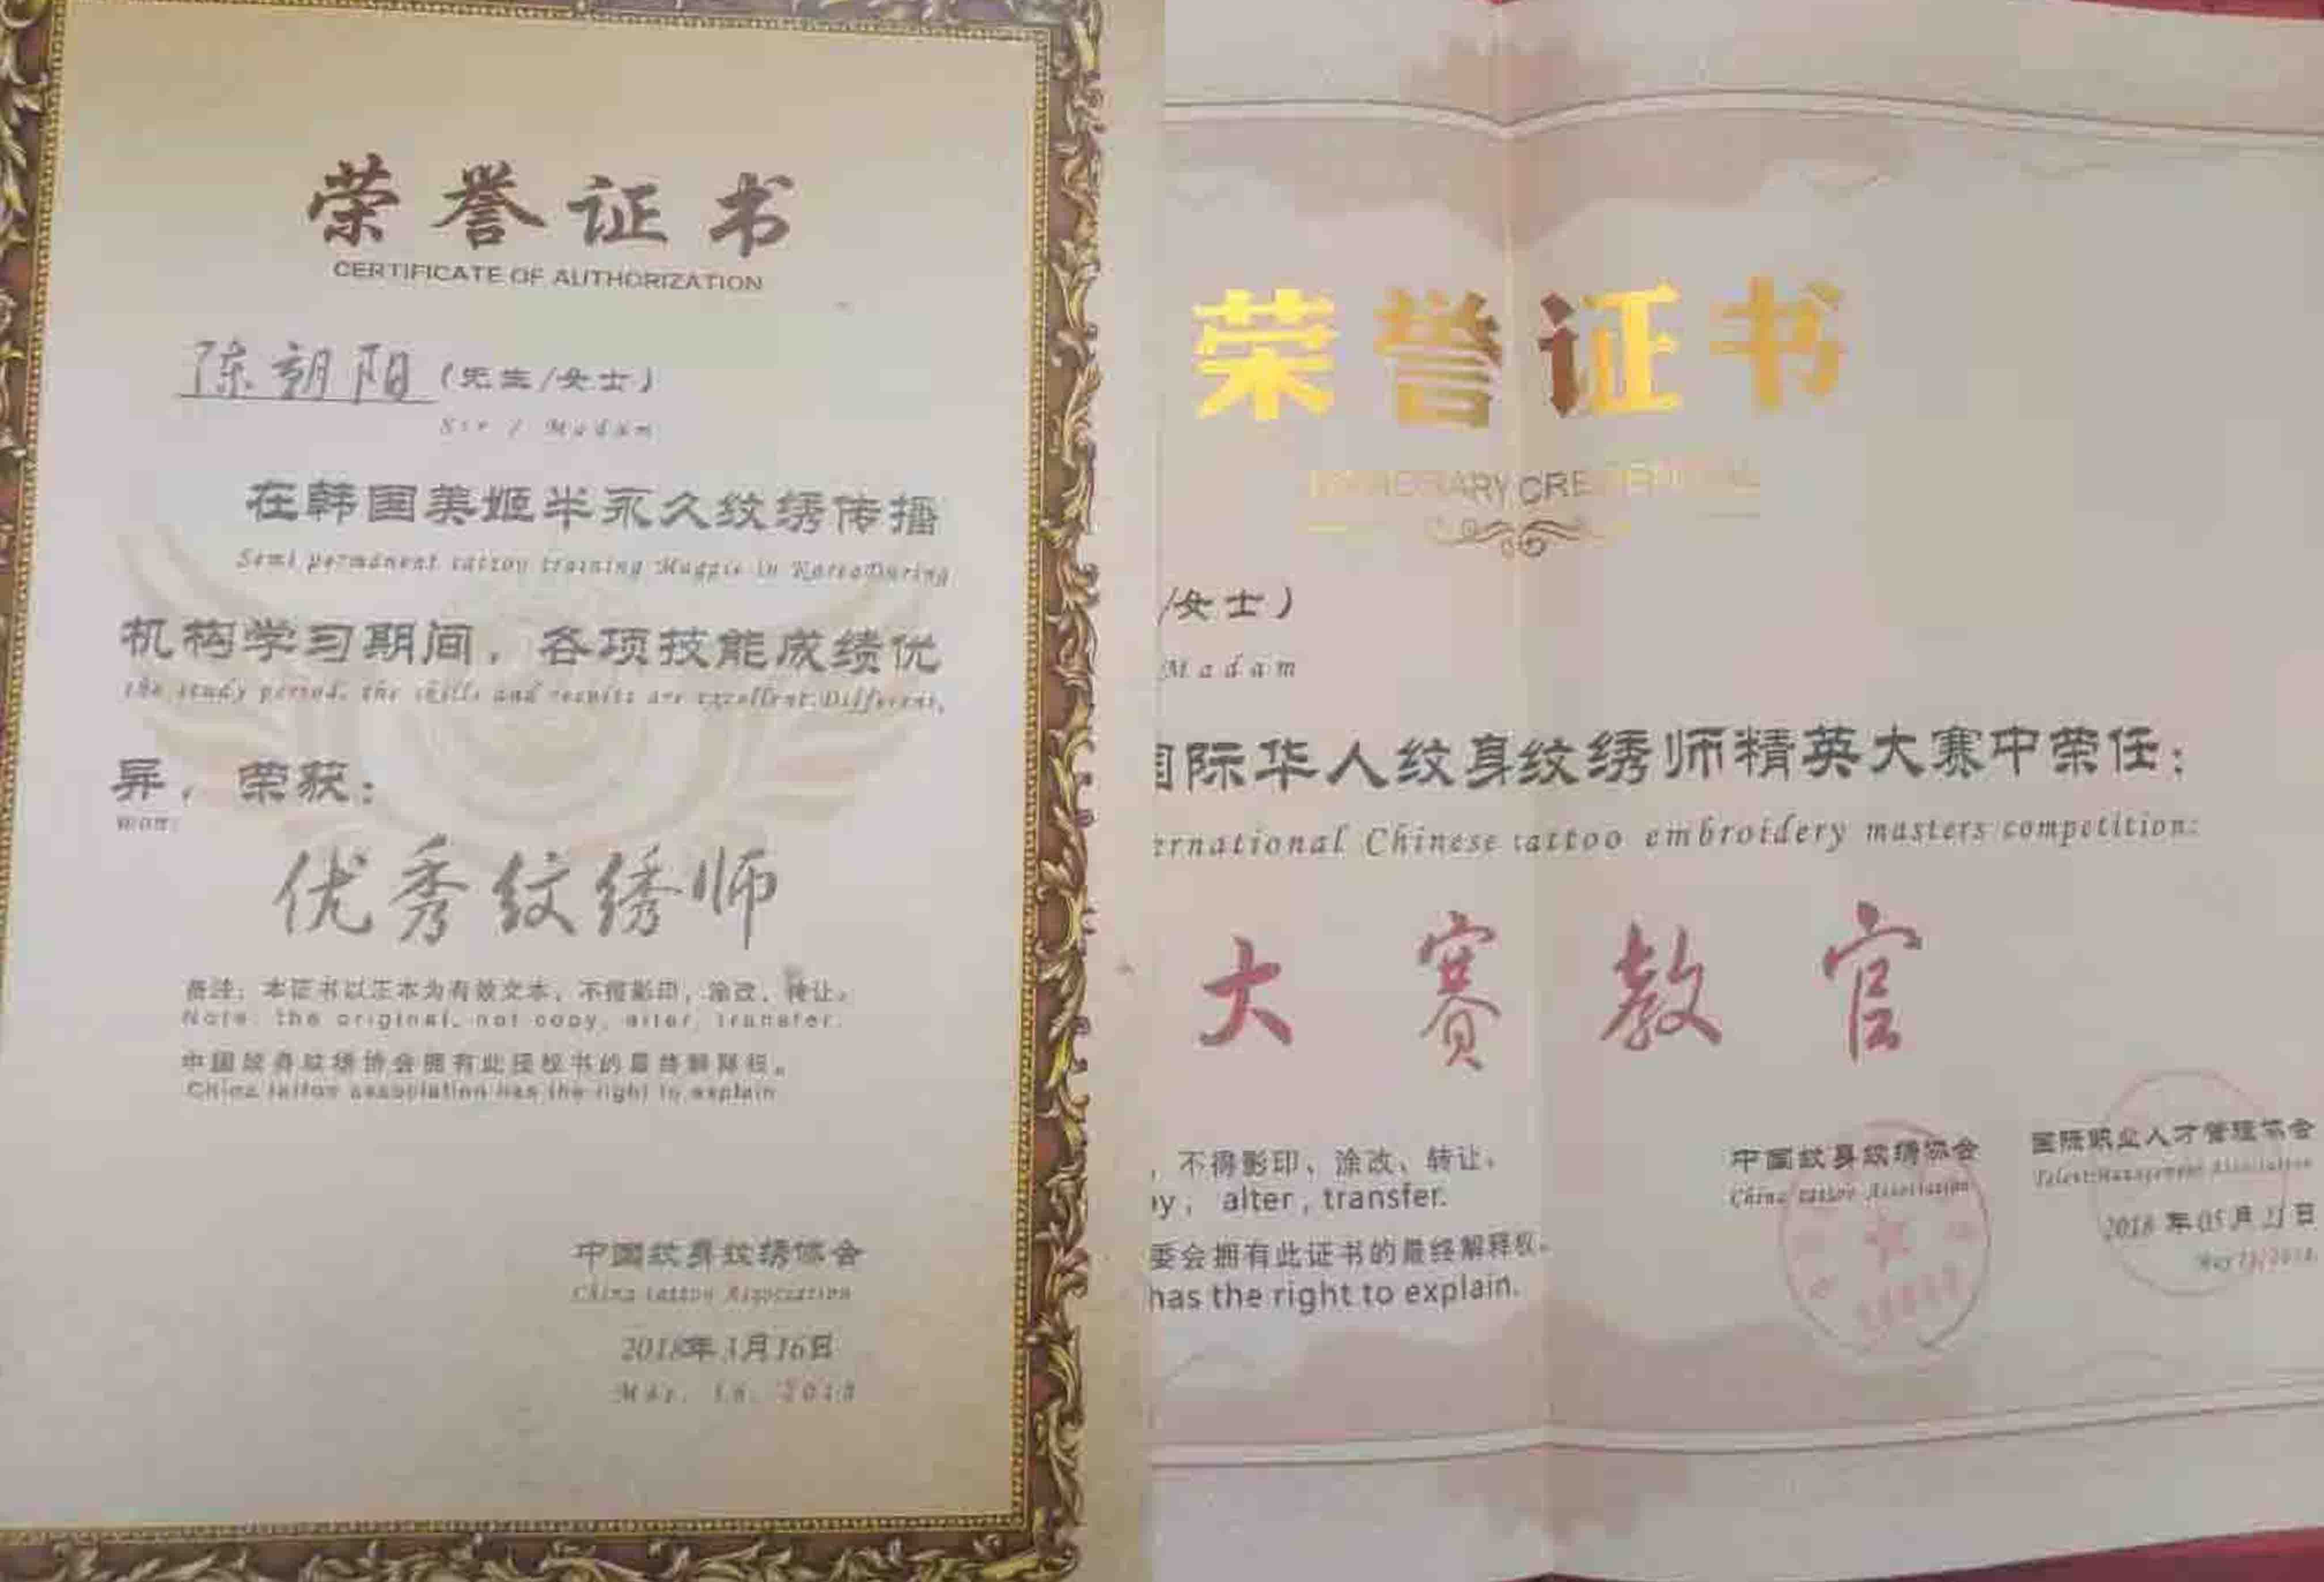 荣誉证书
CERTIFICATE OF AUTHORIZATION
陈朝阳（先生/女士）
Sir / Madam
在韩国美姬半永久纹绣传播
Semi permanent tattoo training Magpie in KoreaDuring
机构学习期间，各项技能成绩优
the study period, the skills and results are excellent.Different,
异，荣获：
won:
优秀纹绣师
备注：本证书以正本为有效文本，不得影印，涂改，转让。
Note: the original, not copy, alter, transfer.
中国纹身纹绣协会拥有此授权书的最终解释权。
China tattoo association has the right to explain
中国纹身纹绣协会
China tattoo Association
2018年3月16日
Mar. 16, 2018
荣誉证书
HONORARY CREDENTIAL
/女士）
Madam
国际华人纹身纹绣师精英大赛中荣任：
ernational Chinese tattoo embroidery masters competition:
大赛教官
，不得影印、涂改、转让。
py, alter, transfer.
委会拥有此证书的最终解释权。
has the right to explain.
中国纹身纹绣协会
China tattoo Association
国际职业人才管理协会
Talent Management Association
2018年05月21日